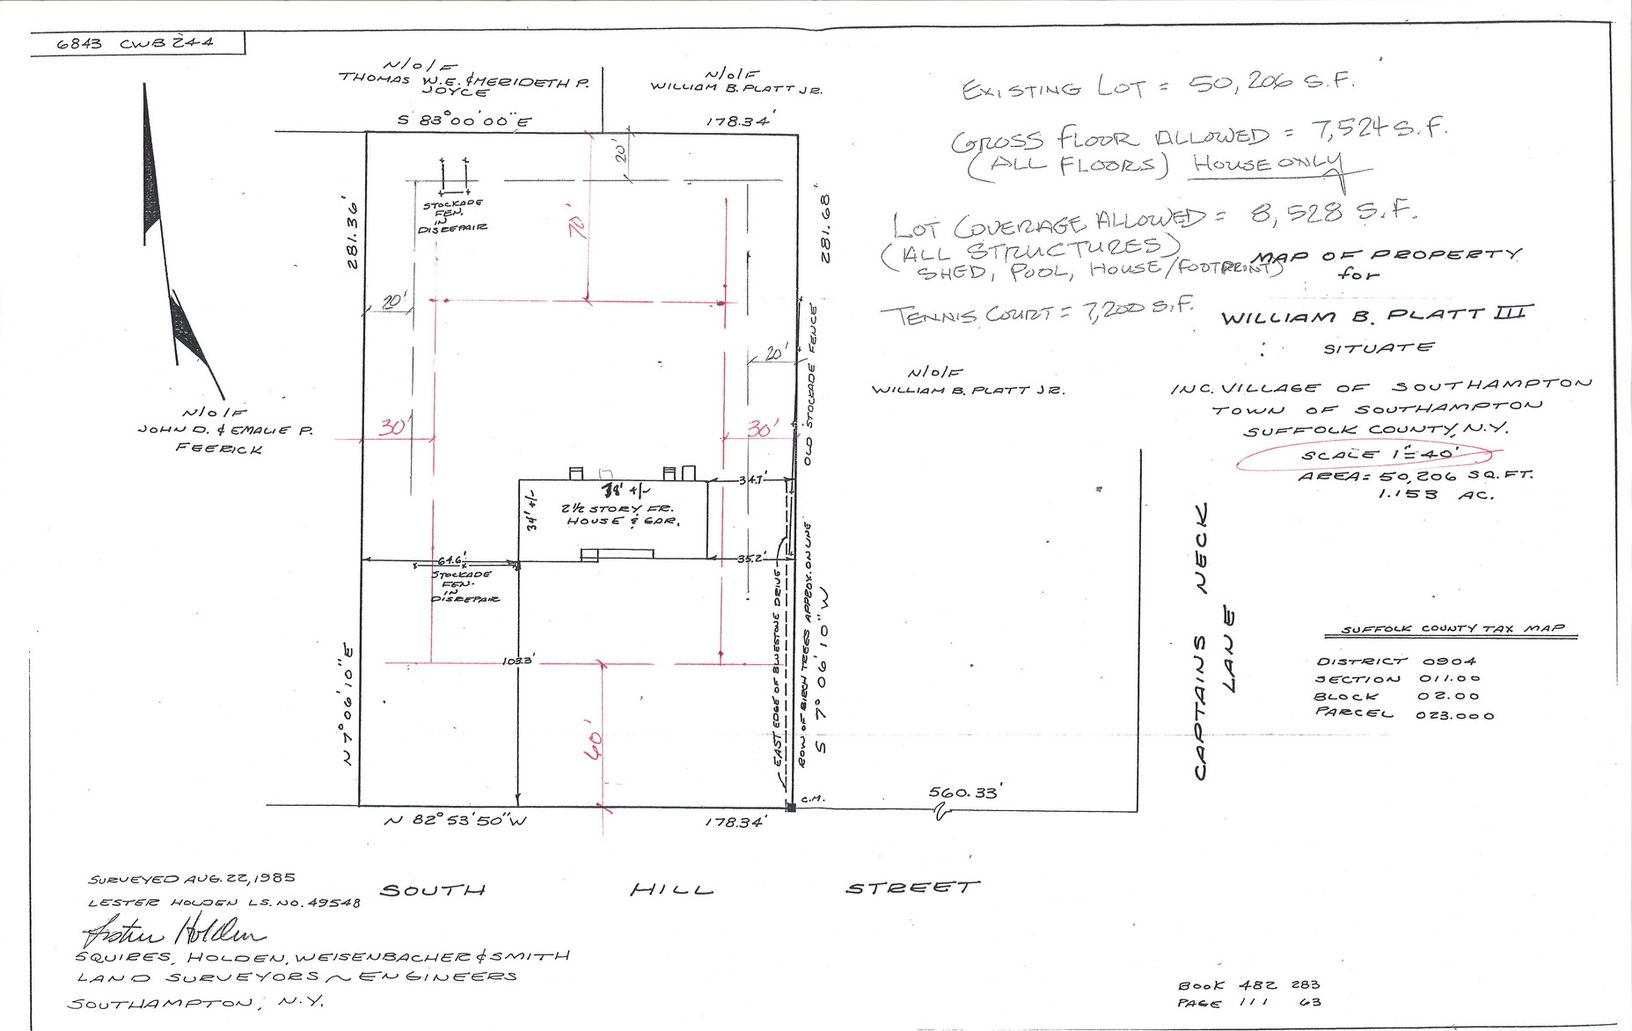 6843 CWB 244
N/O/F
THOMAS W.E. & MERIDETH P.
JOYCE
N/O/F
WILLIAM B. PLATT JR.
S 83° 00' 00" E
178.34'
EXISTING LOT = 50,206 S.F.
GROSS FLOOR ALLOWED = 7,524 S.F.
(ALL FLOORS) HOUSE ONLY
LOT COVERAGE ALLOWED = 8,528 S.F.
(ALL STRUCTURES)
SHED, POOL, HOUSE/FOOTPRINT)
TENNIS COURT = 7,200 S.F.
MAP OF PROPERTY
for
WILLIAM B. PLATT III
SITUATE
INC. VILLAGE OF SOUTHAMPTON
TOWN OF SOUTHAMPTON
SUFFOLK COUNTY, N.Y.
SCALE 1"=40'
AREA= 50,206 SQ. FT.
1.153 AC.
20'
STOCKADE
FEN.
IN
DISREPAIR
70'
281.36'
281.68'
20'
20'
OLD STOCKADE FENCE
N/O/F
WILLIAM B. PLATT JR.
N/O/F
JOHN D. & EMALIE P.
FEERICK
30'
30'
34.7'
34' +/-
78' +/-
2 1/2 STORY FR.
HOUSE & GAR.
64.6'
35.2'
STOCKADE
FEN.
IN
DISREPAIR
103.3'
60'
EAST EDGE OF BLUESTONE DRIVE
ROW OF BIRCH TREES APPROX. ON LINE
N 7° 06' 10" E
S 7° 06' 10" W
C.M.
560.33'
N 82° 53' 50" W
178.34'
CAPTAINS NECK
LANE
SUFFOLK COUNTY TAX MAP
DISTRICT 0904
SECTION 011.00
BLOCK 02.00
PARCEL 023.000
SOUTH HILL STREET
SURVEYED AUG. 22, 1985
LESTER HOLDEN L.S. NO. 49548
Lester Holden
SQUIRES, HOLDEN, WEISENBACHER & SMITH
LAND SURVEYORS ~ ENGINEERS
SOUTHAMPTON, N.Y.
BOOK 482 283
PAGE 111 63